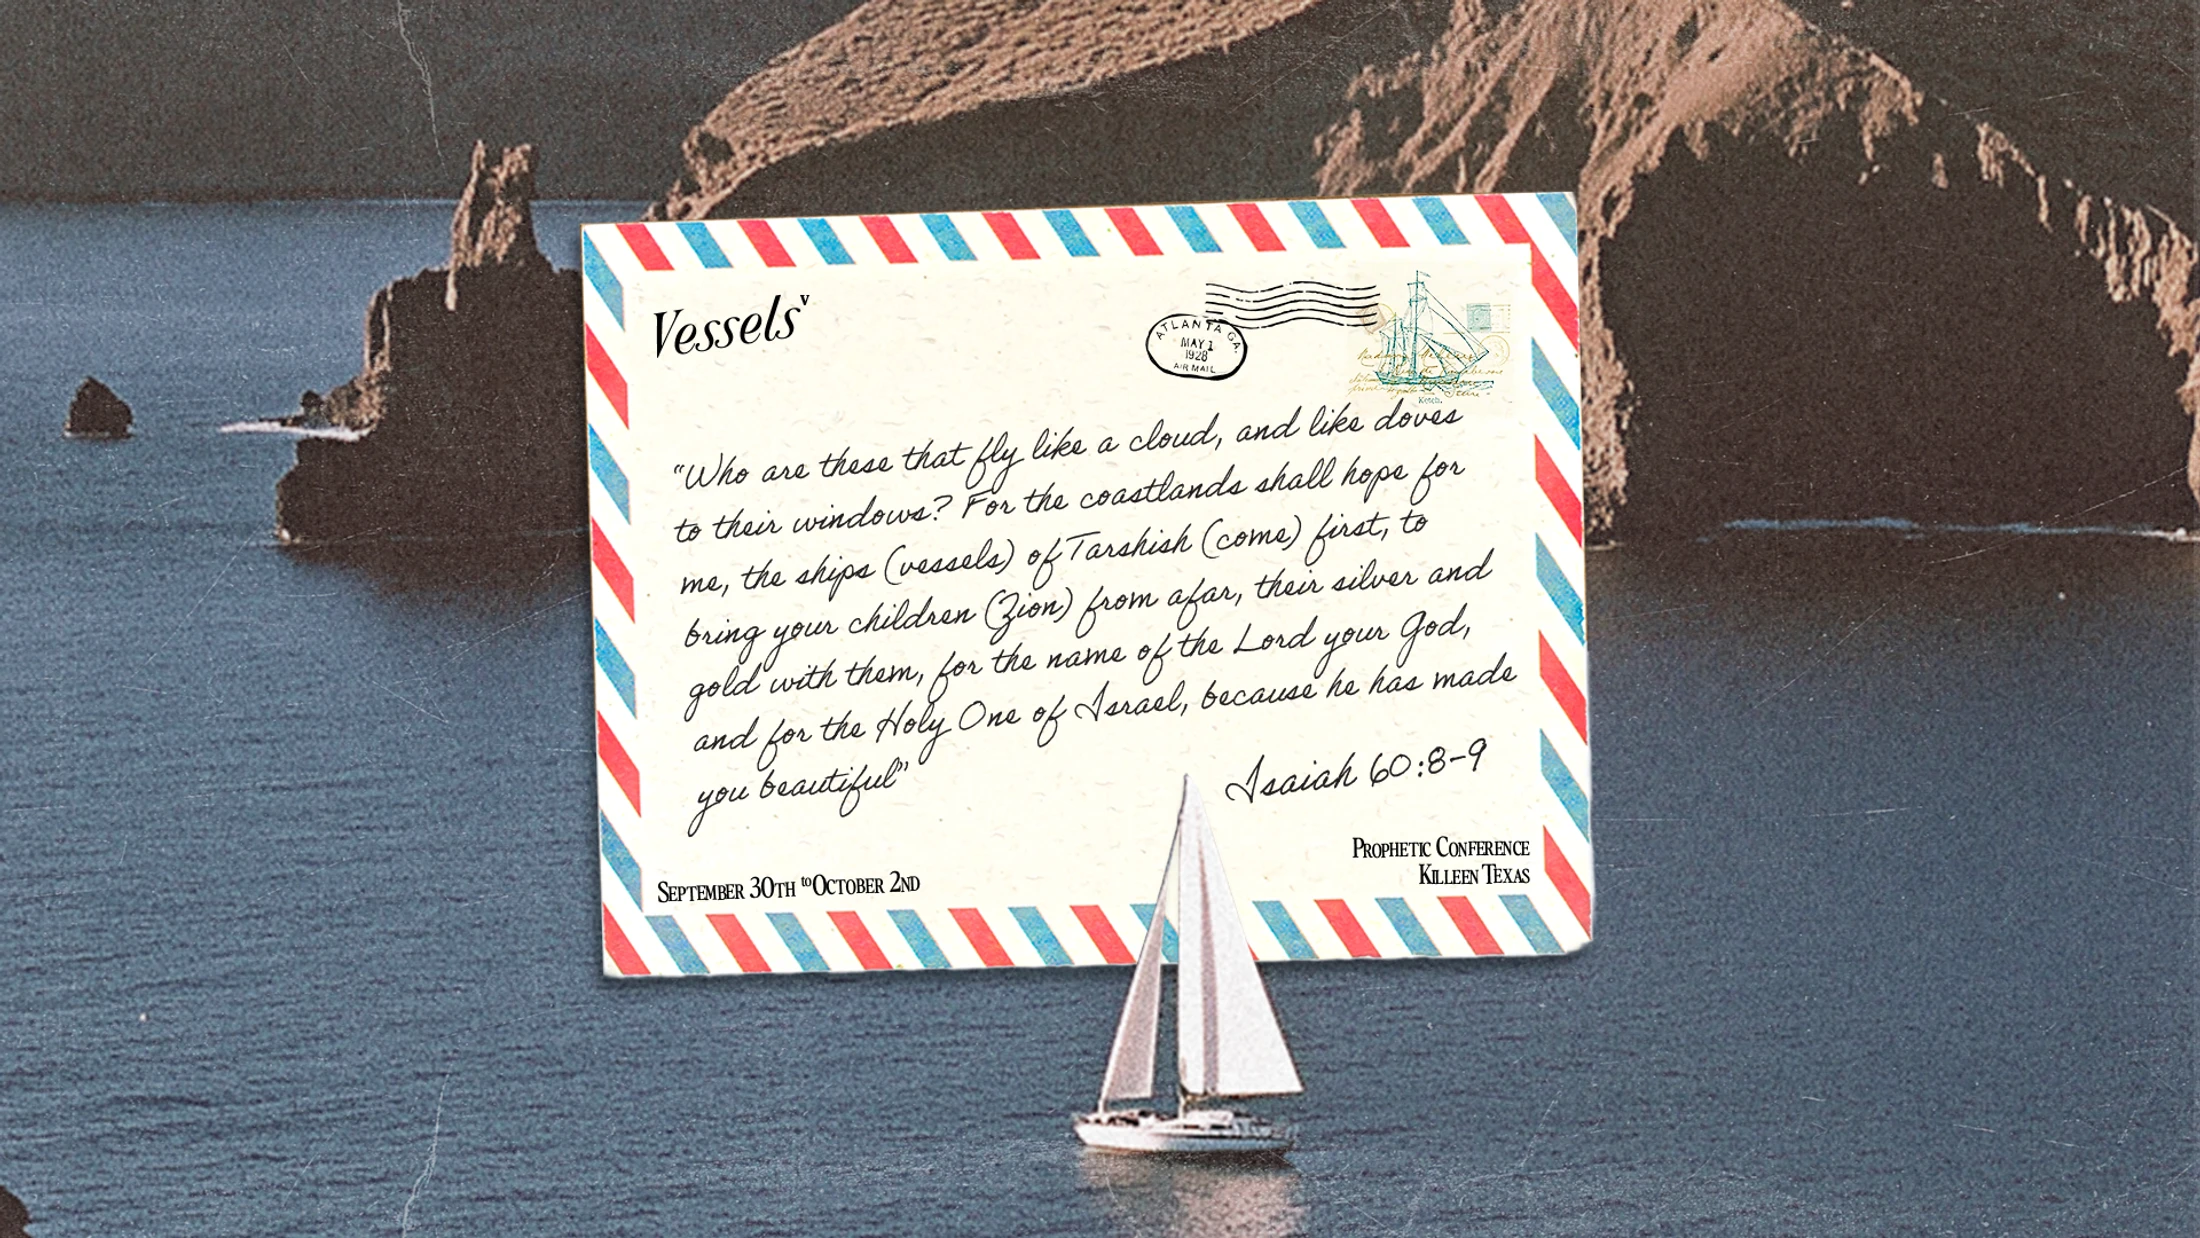 Vessels v
ATLANTA GA.
MAY 1
1928
AIR MAIL
Ketch.
“Who are these that fly like a cloud, and like doves
to their windows? For the coastlands shall hope for
me, the ships (vessels) of Tarshish (come) first, to
bring your children (Zion) from afar, their silver and
gold with them, for the name of the Lord your God,
and for the Holy One of Israel, because he has made
you beautiful”
Isaiah 60:8-9
PROPHETIC CONFERENCE
KILLEEN TEXAS
SEPTEMBER 30TH to OCTOBER 2ND